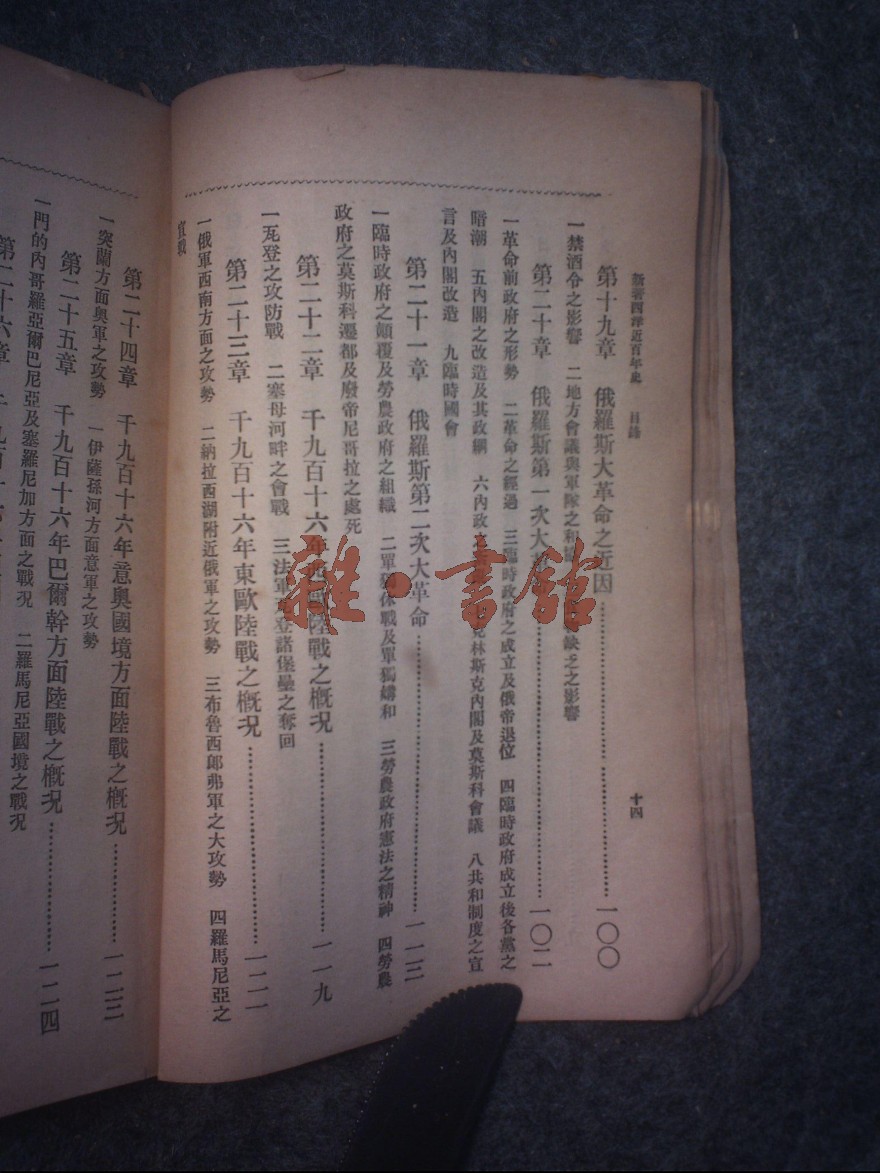 新著西洋近百年史　目錄　十四
第十九章　俄羅斯大革命之近因…………一〇〇
一禁酒令之影響　二地方會議與軍隊之利　缺乏之影響
第二十章　俄羅斯第一次大革…………一〇二
一革命前政府之形勢　二革命之經過　三臨時政府之成立及俄帝退位　四臨時政府成立後各黨之
暗潮　五內閣之改造及其政綱　六內政　克林斯克內閣及莫斯科會議　八共和制度之宣
言及內閣改造　九臨時國會
第二十一章　俄羅斯第二次大革命…………一一三
一臨時政府之顛覆及勞農政府之組織　二單獨休戰及單獨媾和　三勞農政府憲法之精神　四勞農
政府之莫斯科遷都及廢帝尼哥拉之處死
第二十二章　千九百十六年西歐陸戰之概況…………一一九
一瓦登之攻防戰　二塞母河畔之會戰　三法軍瓦登諾堡壘之奪回
第二十三章　千九百十六年東歐陸戰之概況…………一二一
一俄軍西南方面之攻勢　二納拉西湖附近俄軍之攻勢　三布魯西郎弗軍之大攻勢　四羅馬尼亞之
宣戰
第二十四章　千九百十六年意奧國境方面陸戰之概況…………一二三
一突蘭方面奧軍之攻勢　一伊薩孫河方面意軍之攻勢
第二十五章　千九百十六年巴爾幹方面陸戰之概況…………一二四
一門的內哥羅亞爾巴尼亞及塞羅尼加方面之戰況　二羅馬尼亞國境之戰況
第二十六章　千九百十
雜·書館